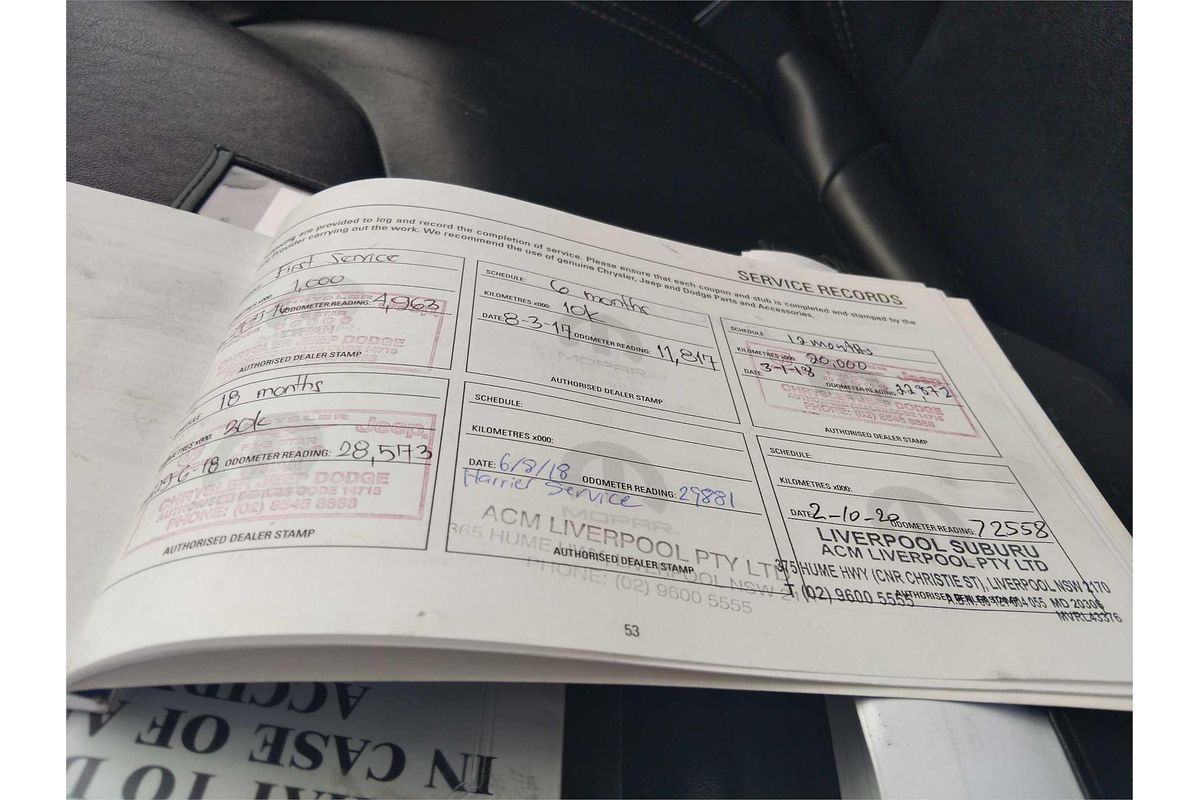 SERVICE RECORDS
are provided to log and record the completion of service. Please ensure that each coupon and stub is completed and stamped by the
provider carrying out the work. We recommend the use of genuine Chrysler, Jeep and Dodge Parts and Accessories.
First Service
1,000
ODOMETER READING: 4,963
CHRYSLER JEEP DODGE
AUTHORISED DEALER STAMP
SCHEDULE: 6 months
KILOMETRES x000: 10k
DATE: 8-3-17 ODOMETER READING: 11,817
MOPAR
AUTHORISED DEALER STAMP
SCHEDULE: 12 months
KILOMETRES x000: 20,000
DATE: 3-1-18
ODOMETER READING: 22972
Jeep
CHRYSLER JEEP DODGE
PHONE: (02) 8545 8888
AUTHORISED DEALER STAMP
18 months
30k
Jeep.
FIVE STAR
-6-18 ODOMETER READING: 28,573
CHRYSLER JEEP DODGE
AUTHORISED DEALER CODE 14715
PHONE: (02) 8545 8888
AUTHORISED DEALER STAMP
SCHEDULE:
KILOMETRES x000:
DATE: 6/8/18 ODOMETER READING: 29881
Harrier Service
MOPAR
ACM LIVERPOOL PTY LTD
365 HUME HWY, LIVERPOOL NSW
AUTHORISED DEALER STAMP
PHONE: (02) 9600 5555
SCHEDULE:
KILOMETRES x000:
DATE: 2-10-20 ODOMETER READING: 72558
LIVERPOOL SUBURU
ACM LIVERPOOL PTY LTD
375 HUME HWY (CNR CHRISTIE ST), LIVERPOOL NSW 2170
T (02) 9600 5555
MD 20306
MVRL43376
53
IN CASE OF AN
ACCIDENT